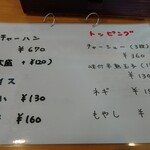 チャーハン
¥670
大盛 +¥120)
イス
¥130
¥160
トッピング
チャーシュー(3枚)
¥360
味付半熟玉子(1
130
ネギ ¥1
もやし ¥